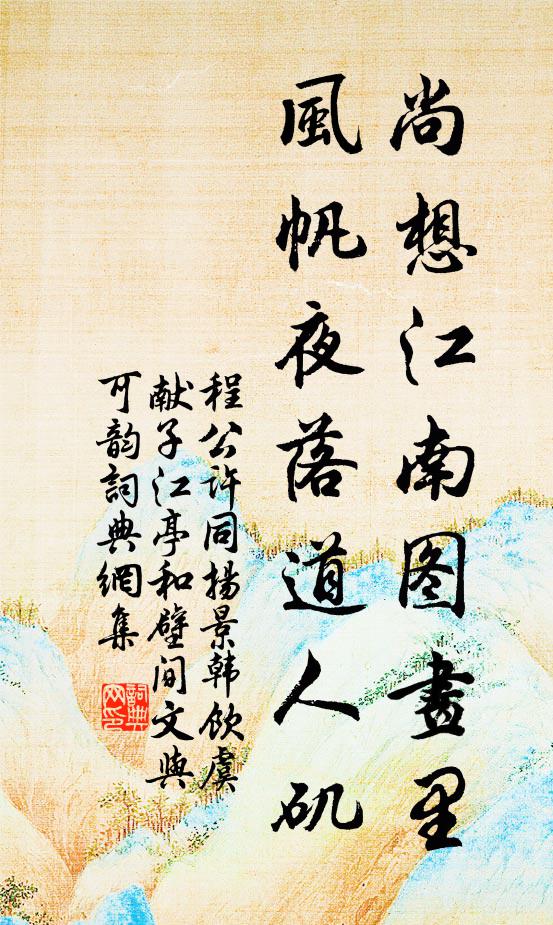 尚想江南图畫里
風帆夜落道人矶
程公许同揚景韩饮虞
献子江亭和壁间文與
可韵詞典網集
詞典
网印